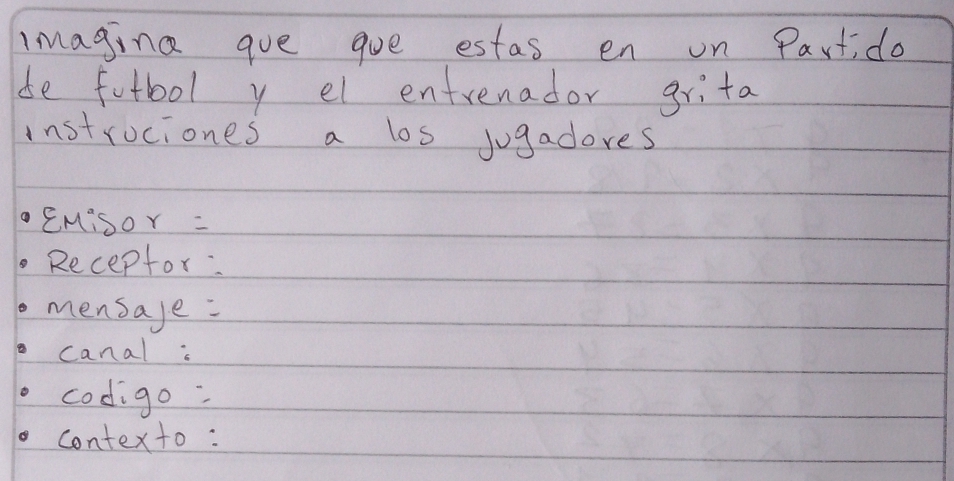 imagina que que estas en un Partido
de futbol y el entrenador grita
instruciones a los jugadores
• EMisor =
• Receptor:
• mensaje =
• canal :
• codigo =
• contexto :